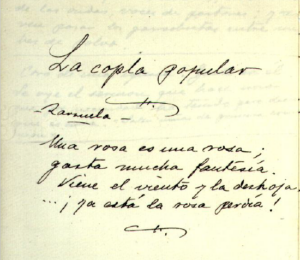 La copla popular
- Zarzuela -
Una rosa es una rosa;
gasta mucha fantesía.
Viene el viento y la deshoja.
...¡ya está la rosa perdía!